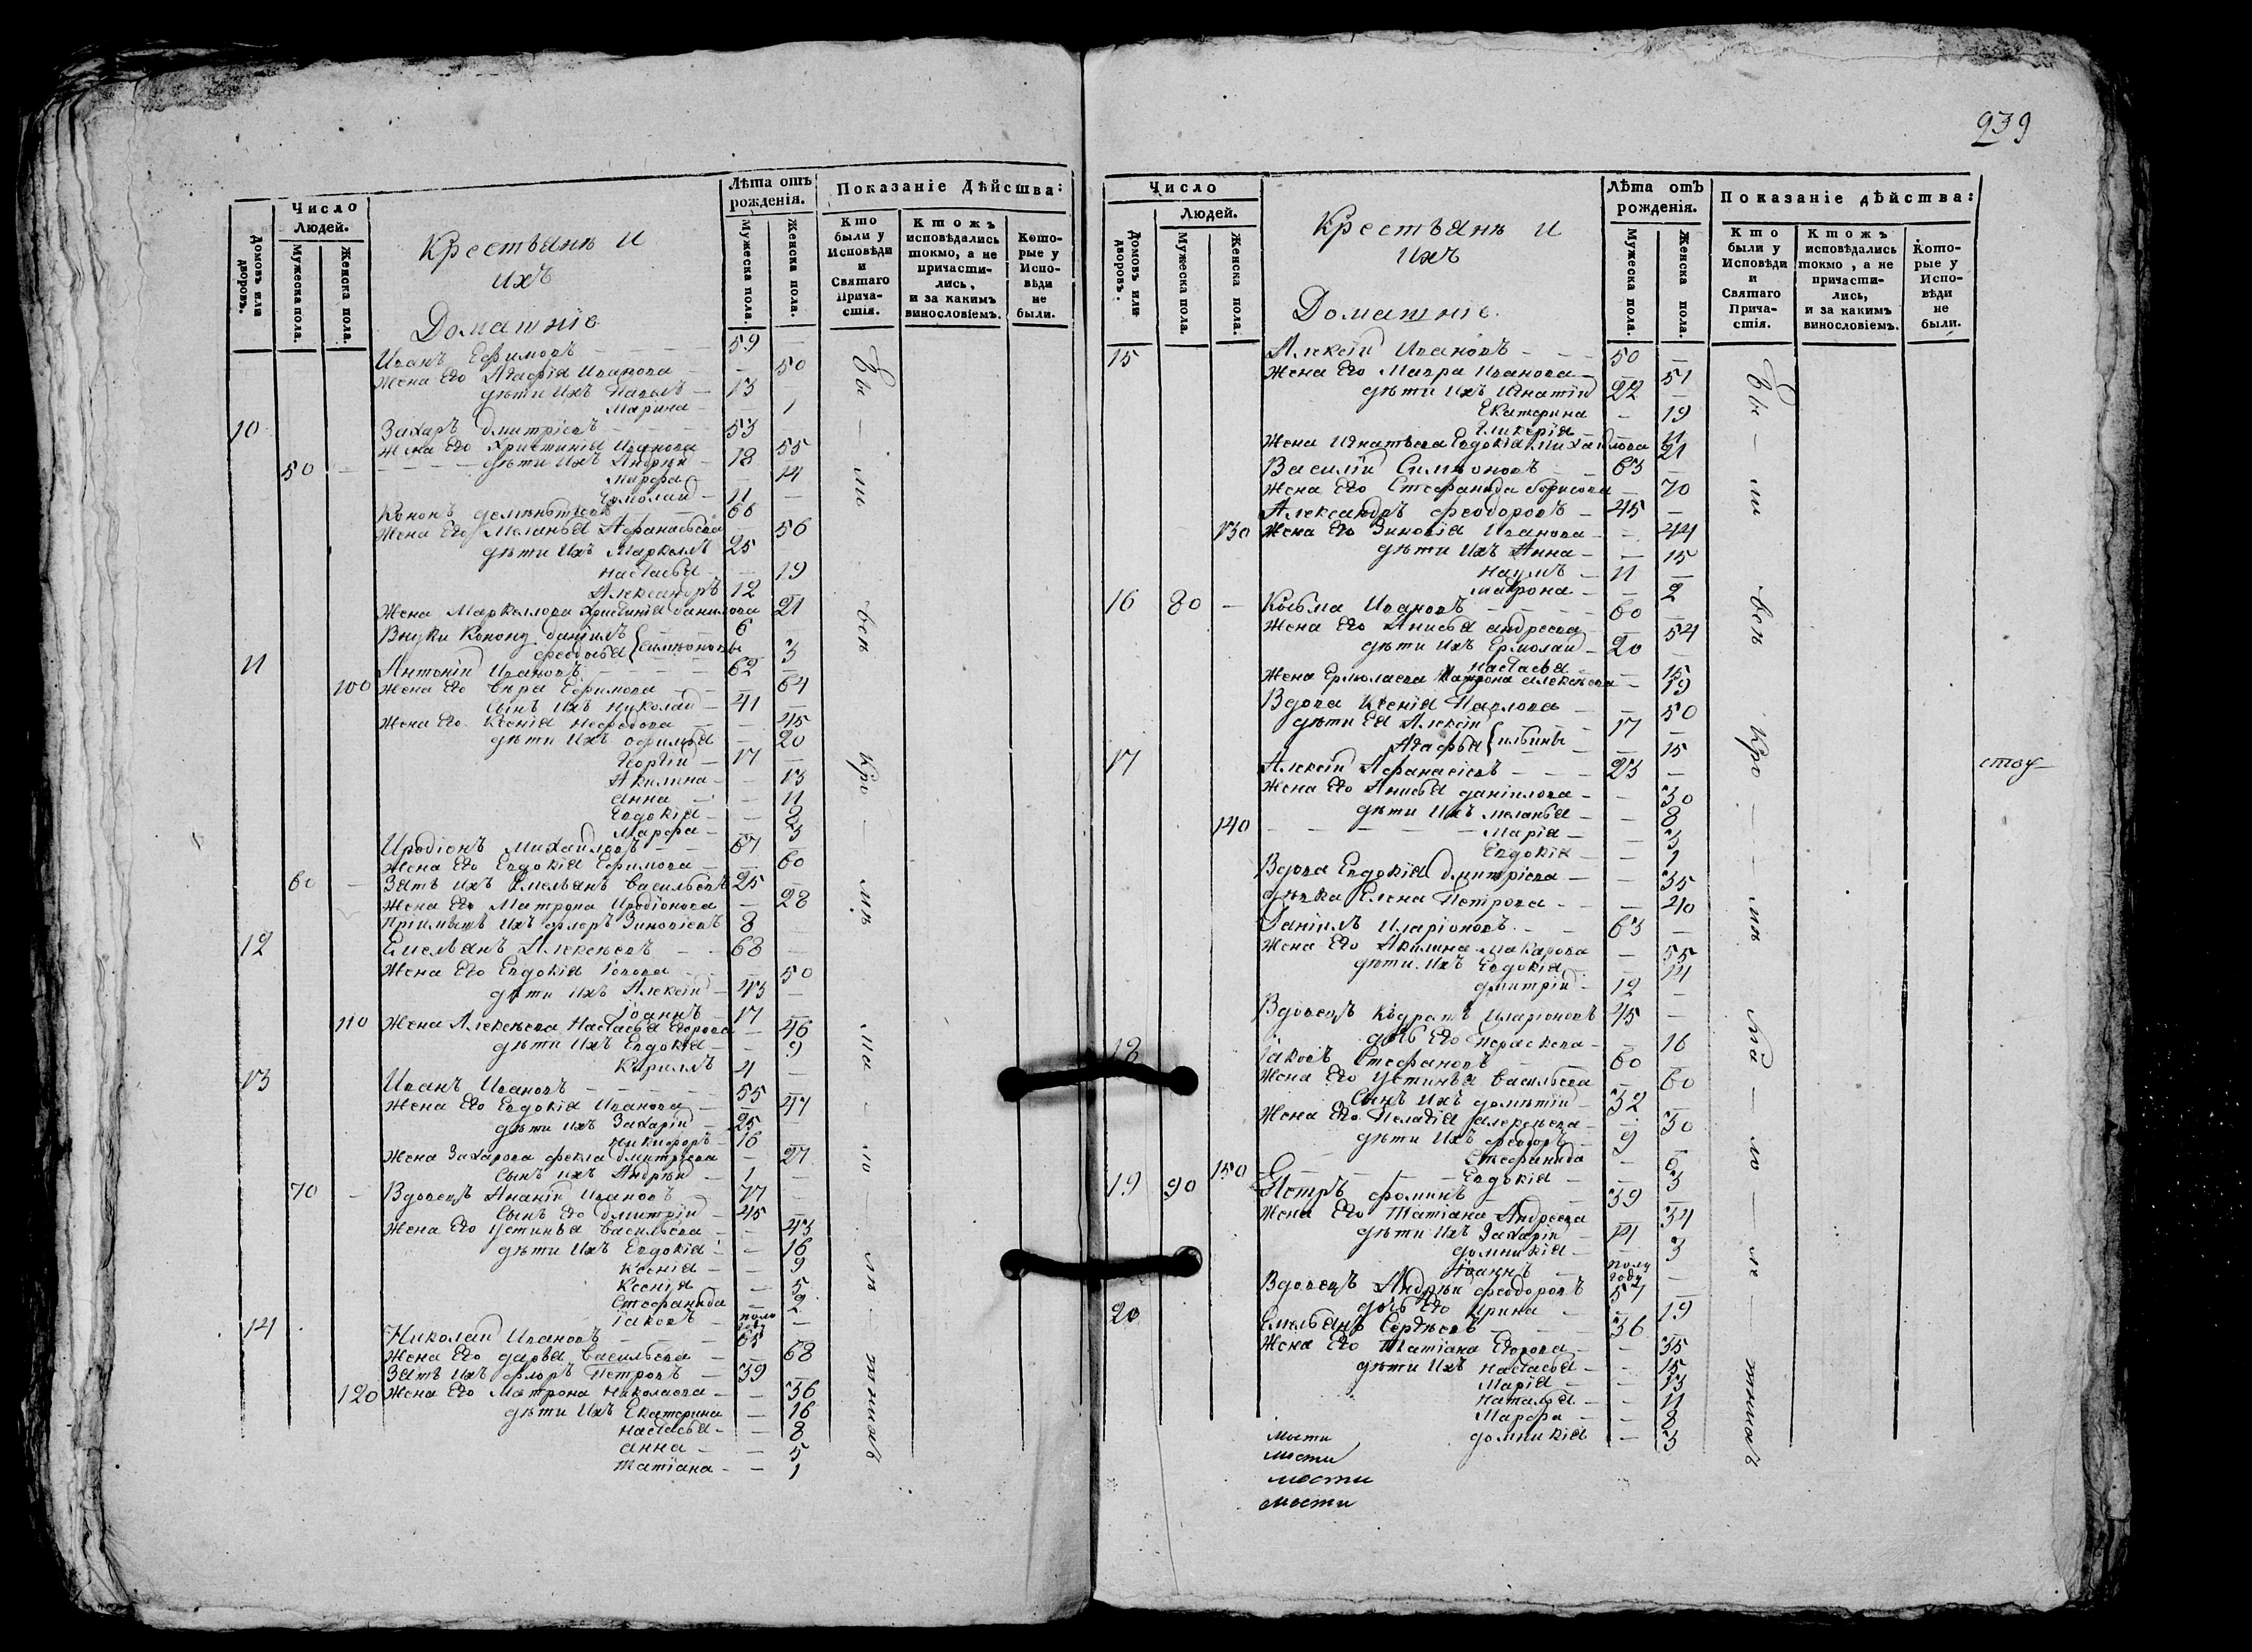 939
Число Людей.
Лѣта отъ рожденія.
Показаніе Дѣйства:
Домовъ или дворовъ.
Мужеска пола.
Женска пола.
Крестьянѣ и
ихъ
Домашніе
Мужеска пола.
Женска пола.
Кто были у Исповѣди и Святаго Причастія.
Ктожъ исповѣдались токмо, а не причастились, и за какимъ винословіемъ.
Которые у Исповѣди не были.
Иванъ Ефимовъ 59
Жена Его Агафія Иванова 50
дѣти Ихъ Павелъ 13
Марина 1
10 Захаръ Дмитріевъ 53
Жена Его Христинія Иванова 55
50 дѣти Ихъ Андрѣй 18
Марфа 14
Ермолай 11
Кононъ Дементьевъ 66
Жена Его Меланья Афанасьева 56
дѣти Ихъ Маркеллъ 25
Настасья 19
Александръ 12
Жена Маркеллова Христинія Данилова 21
Внуки Конону Даніилъ 6
Феодосья Симеоновы 3
11 Антоній Ивановъ 62
100 Жена Его Вѣра Ефимова 64
Сынъ Ихъ Николай 41
Жена Его Ксенія Нефедова 45
дѣти Ихъ Офимья 20
Георгій 17
Акилина 13
Анна 11
Евдокія 8
Марфа 3
Иродіонъ Михайловъ 67
Жена Его Евдокія Ефимова 60
60 Зять ихъ Емельянъ Васильевъ 25
Жена Его Матрона Иродіонова 28
Пріимышъ Ихъ Флоръ Зиновіевъ 8
12 Емельянъ Алексѣевъ 68
Жена Его Евдокія Іовова 50
дѣти Ихъ Алексій 43
Іоаннъ 17
110 Жена Алексѣева Настасья Егорова 46
дѣти Ихъ Евдокія 9
Кириллъ 4
13 Иванъ Ивановъ 55
Жена Его Евдокія Иванова 47
дѣти Ихъ Захарій 25
Никифоръ 16
Жена Захарова Фекла Дмитріева 27
Сынъ ихъ Андрѣй 1
70 Вдовецъ Ананій Ивановъ 77
Сынъ Его Дмитрій 45
Жена Его Устинья Васильева 43
дѣти Ихъ Евдокія 16
Ксенія 9
Ксенія 5
Стефанида 2
Іаковъ полгода
14 Николай Ивановъ 65
Жена Его Дарья Васильева 68
Зять Ихъ Флоръ Петровъ 39
120 Жена Его Матрона Николаева 36
дѣти Ихъ Екатерина 16
Настасья 8
Анна 5
Татіана 1
Число
Людей.
Лѣта отъ рожденія.
Показаніе дѣйства:
Домовъ или дворовъ.
Мужеска пола.
Женска пола.
Крестьянѣ и
ихъ
Домашніе.
Мужеска пола.
Женска пола.
Кто были у Исповѣди и Святаго Причастія.
Ктожъ исповѣдались токмо, а не причастились, и за какимъ винословіемъ.
Которые у Исповѣди не были.
15 Алексій Ивановъ 50
Жена Его Мавра Иванова 51
дѣти Ихъ Игнатій 22
Екатерина 19
Гликерія 11
Жена Игнатьева Евдокія Михайлова 21
Василій Симеоновъ 63
Жена Его Стефанида Борисова 70
Александръ Феодоровъ 45
130 Жена Его Зиновія Иванова 44
дѣти Ихъ Анна 15
Наумъ 11
Матрона 2
16 80 Козьма Ивановъ 60
Жена Его Анисья Андреева 54
дѣти Ихъ Ермолай 20
Настасья 15
Жена Ермолаева Матрона Алексѣева 19
Вдова Ксенія Павлова 50
дѣти Ея Алексій 17
Агафья Ильины 15
17 Алексій Афанасіевъ 23
стоу
Жена Его Анисья Даніилова 30
дѣти Ихъ Меланья 8
140 Марія 3
Евдокія 1
Вдова Евдокія Дмитріева 35
дѣвка Елена Петрова 40
Даніилъ Иларіоновъ 63
Жена Его Акилина Макарова 55
дѣти Ихъ Евдокія 14
Дмитрій 12
Вдовецъ Кодратъ Иларіоновъ 45
дочь Его Параскева 16
18 Іаковъ Стефановъ 60
Жена Его Устинья Васильева 60
Сынъ Ихъ Дометій 32
Жена Его Пелагія Алексѣева 30
дѣти Ихъ Феодоръ 9
Стефанида 6
150 Евдокія 3
19 90 Петръ Фоминъ 39
Жена Его Татіана Андреева 34
дѣти Ихъ Захарій 14
Домникія 3
Іоаннъ полугоду
Вдовецъ Андрѣй Феодоровъ 57
дочь Его Ирина 19
20 Емельянъ Сергѣевъ 36
Жена Его Татіана Егорова 35
дѣти Ихъ Настасья 15
Марія 13
Наталья 11
Марфа 8
Домникія 3
мости
мости
мости
мости